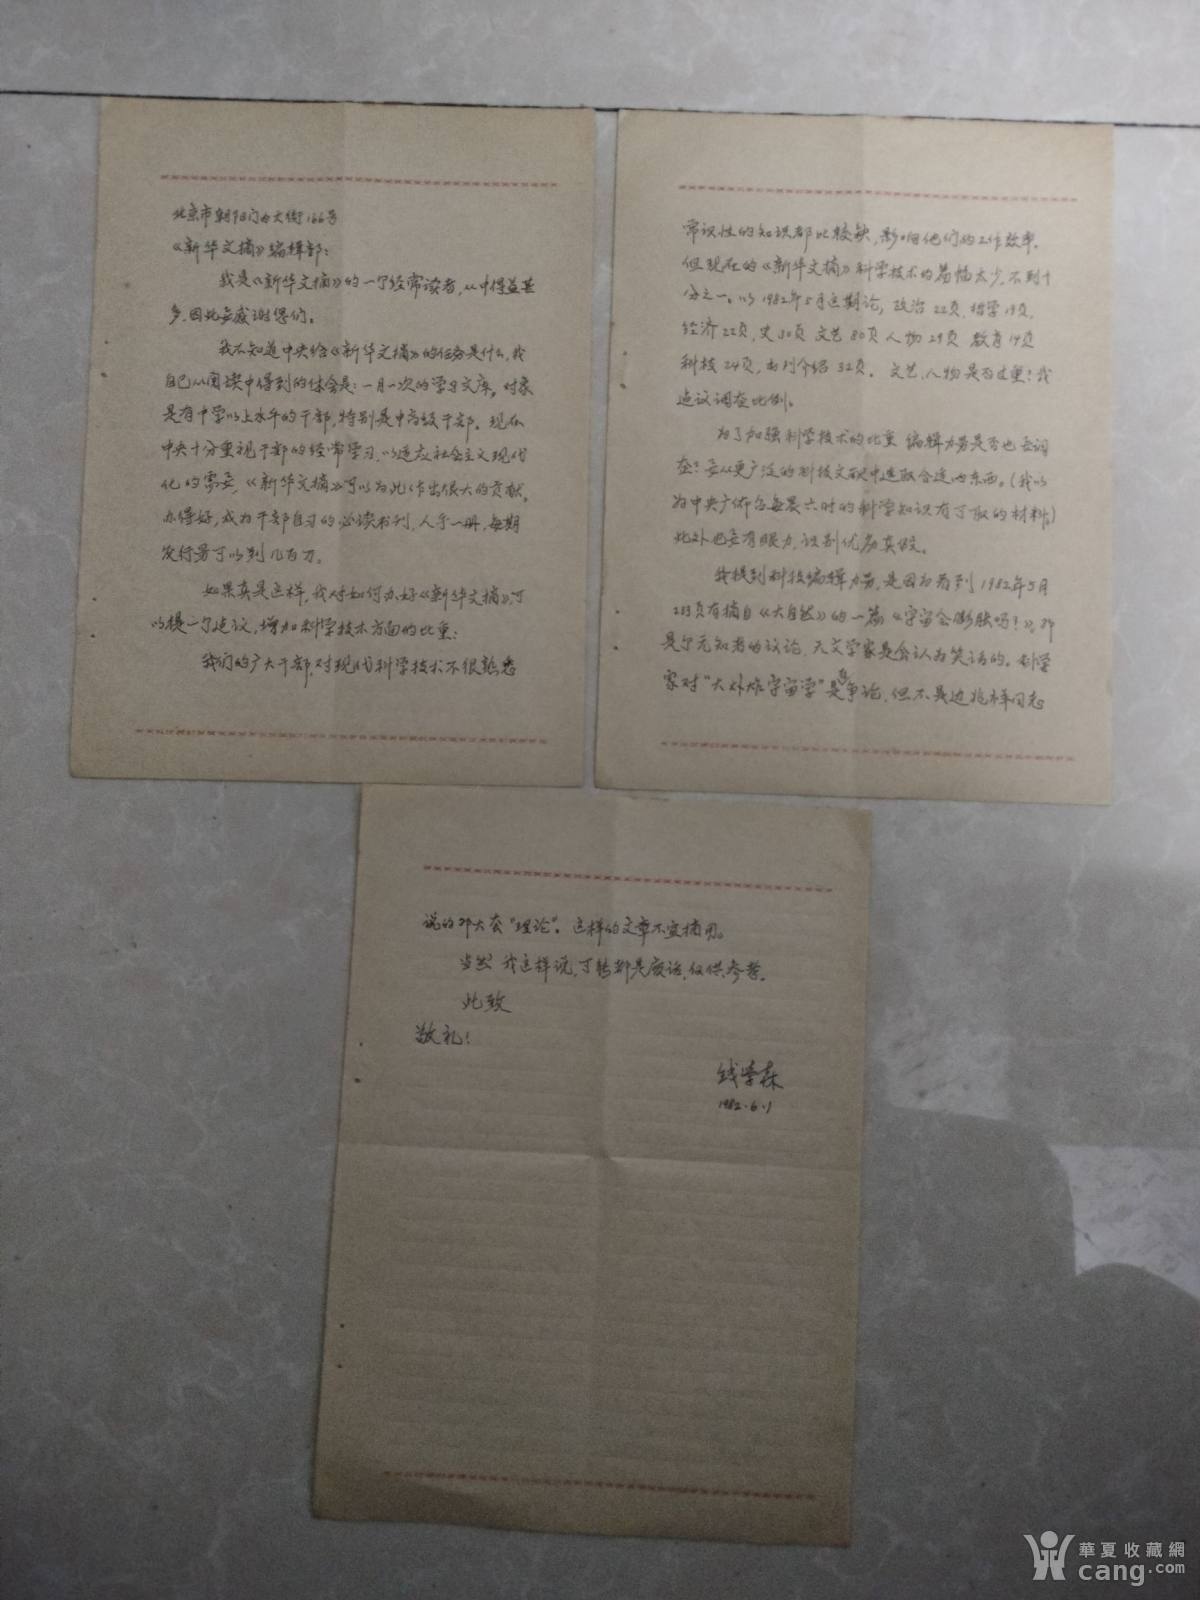 北京市朝阳门内大街166号
《新华文摘》编辑部:
我是《新华文摘》的一个经常读者,从中得益甚
多,因此要感谢您们。
我不知道中央给《新华文摘》的任务是什么,我
自己从阅读中得到的体会是:一月一次的学习文库。对象
是有中学以上水平的干部,特别是中高级干部。现在
中央十分重视干部的经常学习,以适应社会主义现代
化的需要,《新华文摘》可以为此作出很大的贡献。
办得好,成为干部自习的必读书刊,人手一册,每期
发行量可以到几百万。
如果真是这样,我对如何办好《新华文摘》,可
以提一个建议,增加科学技术方面的比重:
我们的广大干部,对现代科学技术不很熟悉
常识性的知识都比较缺,影响他们的工作效率。
但现在的《新华文摘》科学技术的篇幅太少,不到十
分之一。以1982年5月这期论,政治22页,哲学19页,
经济22页,史30页 文艺80页 人物29页 教育14页
科技24页,书刊介绍32页。文艺、人物是否过重?我
建议调查比例。
为了加强科学技术的比重 编辑力量是否也要调
查?要从更广泛的科技文献中选取合适的东西。(我以
为中央广佈台每晨六时的科学知识有可取的材料。)
此外也要有眼力,识别优劣真假。
我提到科技编辑力量,是因为看到1982年5月
233页有摘自《大自然》的一篇《宇宙会膨胀吗?》,那
是个无知者的议论,天文学家是会认为笑话的。科学
家对“大爆炸宇宙学”是有争论,但不是边兆祥同志
说的那大套“理论”。这样的文章不宜摘用。
当然 我这样说,可能都是废话,仅供参考。
此致
敬礼!
钱学森
1982.6.1
華夏收藏網
cang.com